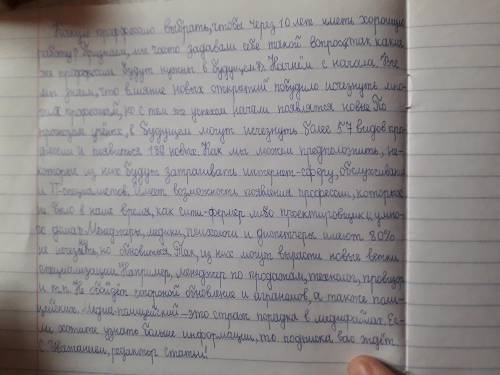 Какую профессию выбрать, чтобы через 10 лет иметь хорошую
работу? Признаем, мы часто задавали себе такой вопрос, так какие
же профессии будут нужны в будущем? Начнём с начала. Все
мы знаем, что влияние новых открытий побудило исчезнуть мно-
гих профессий, но с тем же успехом начали появлятся новые. По
прогнозам учёных, в будущем могут исчезнуть более 57 видов про-
фессий и появиться 186 новых. Как мы можем предположить, не-
которые из них будут затрагивать интернет-сферу, обслуживания
и IT-специалистов. Имеет возможность появления профессии, которых
не было в наше время, как сити-фермер либо проектировщик умно-
го дома. Менеджеры, медики, психологи и диспетчеры имеют 80%
не исчезнуть, но обновиться. Так, из них могут вырасти новые ветки
специализации. Например, менеджер по продажам, технолог, провизор
и т.п. Не обойдёт стороной обновление и аграномов, а также поли-
цейских. Медиа-полицейский - это страж порядка в медиафайлах. Ес-
ли хотите узнать больше информации, то подписка вас ждёт.
С Уважанием, редактор статьи!